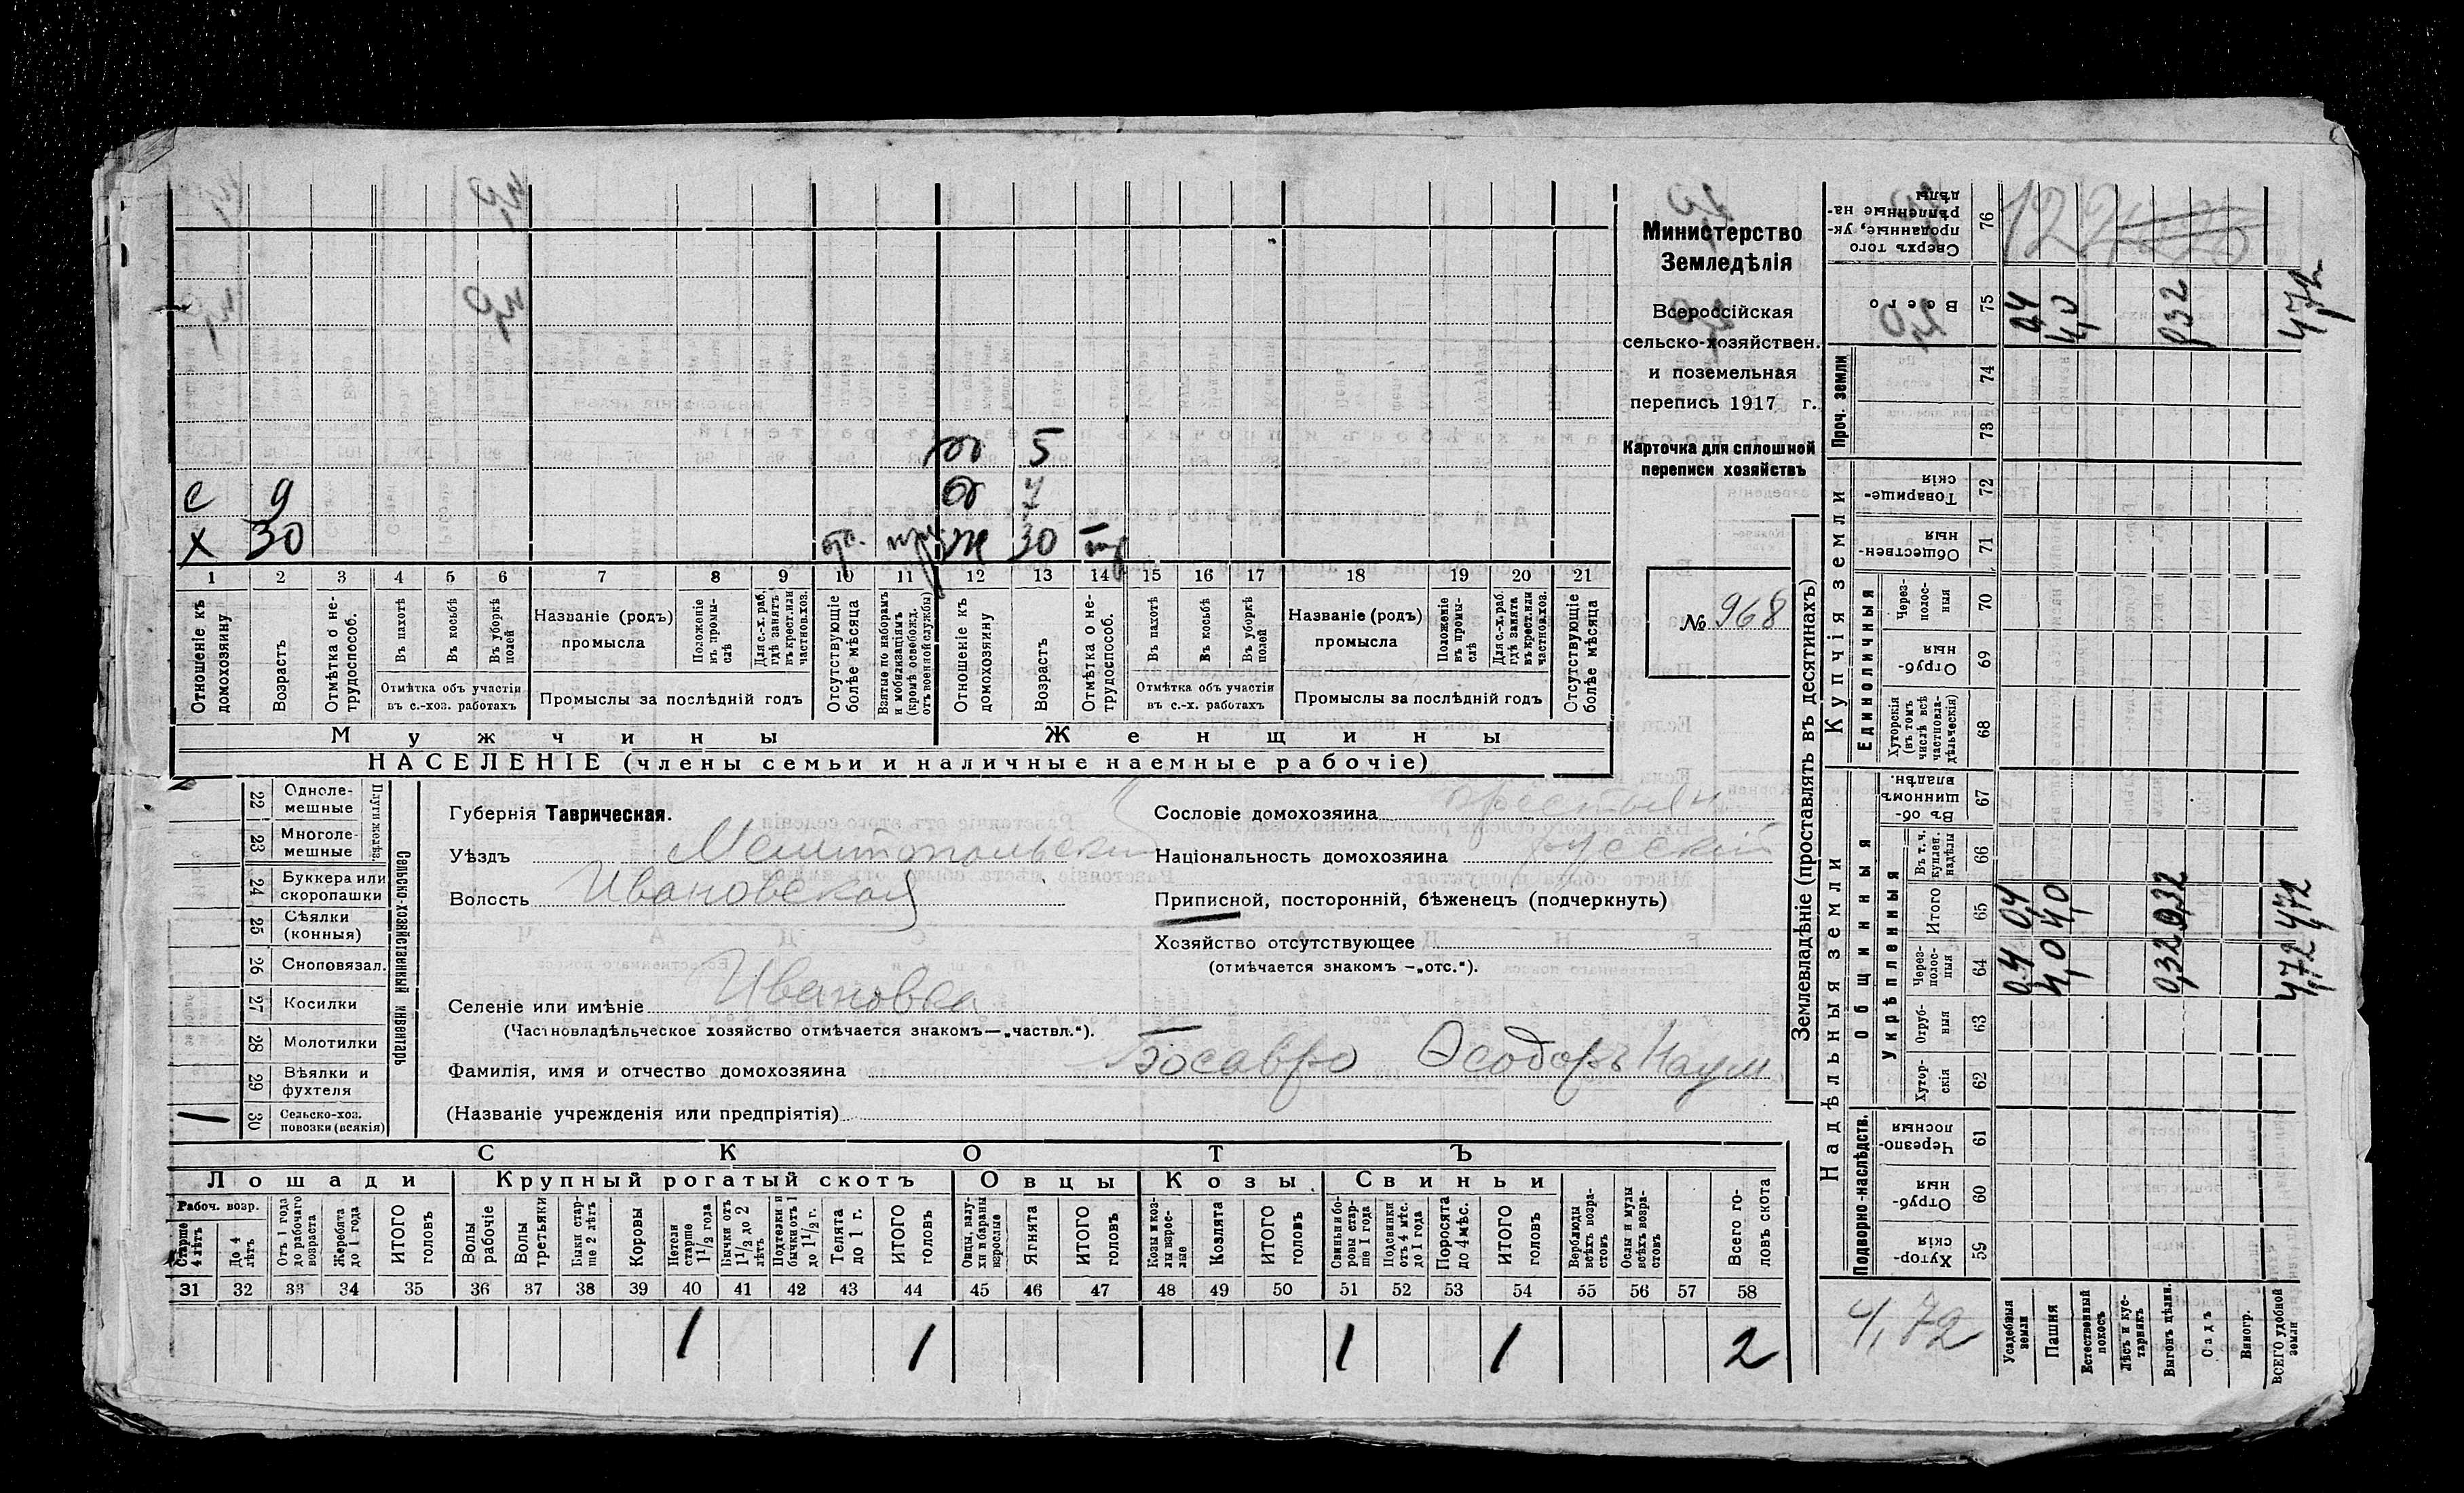 с 9
х 30 отс.
от 5
от 7
ж 30
1 2 3 4 5 6 7 8 9 10 11 12 13 14 15 16 17 18 19 20 21
Отношеніе къ домохозяину
Возрастъ
Отмѣтка о не-трудоспособ.
Въ пахотѣ
Въ косьбѣ
Въ уборкѣ полей
Отмѣтка объ участіи
въ с.-хоз. работахъ
Названіе (родъ)
промысла
Положеніе въ промы-слѣ
Для с.-х. раб. гдѣ занятъ въ крест. или частнов. хоз.
Промыслы за послѣдній годъ
Отсутствующіе болѣе мѣсяца
Взятые по наборамъ и мобилизаціямъ (кромѣ освобожд. отъ военной службы)
Отношеніе къ домохозяину
Возрастъ
Отмѣтка о не-трудоспособ.
Въ пахотѣ
Въ косьбѣ
Въ уборкѣ полей
Отмѣтка объ участіи
въ с.-х. работахъ
Названіе (родъ)
промысла
Положеніе въ промы-слѣ
Для с.-х. раб. гдѣ занята въ крест. или частнов. хоз.
Промыслы за послѣдній годъ
Отсутствующіе болѣе мѣсяца
Мужчины
Женщины
НАСЕЛЕНІЕ (члены семьи и наличные наемные рабочіе)
Министерство
Земледѣлія
Всероссійская
сельско-хозяйствен.
и поземельная
перепись 1917 г.
Карточка для сплошной
переписи хозяйствъ
№ 968
22 Одноле-мешные
23 Многоле-мешные
Плуги желѣз.
24 Буккера или скоропашки
25 Сѣялки (конныя)
26 Сноповязал.
27 Косилки
28 Молотилки
29 Вѣялки и фухтеля
1 30 Сельско-хоз. повозки (всякія)
Сельско-хозяйственный инвентарь
Губернія Таврическая.
Уѣздъ Мелитопольскій
Волость Ивановская
Селеніе или имѣніе Ивановка
(Частновладѣльческое хозяйство отмѣчается знакомъ—„частвл.“).
Фамилія, имя и отчество домохозяина Босавро Ѳеодоръ Наум
(Названіе учрежденія или предпріятія)
Сословіе домохозяина крестьян
Національность домохозяина русскій
Приписной, посторонній, бѣженецъ (подчеркнуть)
Хозяйство отсутствующее
(отмѣчается знакомъ —„отс.“).
СКОТЪ
Лошади Крупный рогатый скотъ Овцы Козы Свиньи
Рабоч. возр.
Старше 4 лѣтъ
До 4 лѣтъ
Отъ 1 года до рабочаго возраста
Жеребята до 1 года
ИТОГО головъ
Волы рабочіе
Волы третьяки
Быки стар-ше 2 лѣтъ
Коровы
Нетели старше 1 1/2 года
Бычки отъ 1 1/2 до 2 лѣтъ
Подтелки и бычки отъ 1 до 1 1/2 г.
Телята до 1 г.
ИТОГО головъ
Овцы, валу-хи и бараны взрослые
Ягнята
ИТОГО головъ
Козы и коз-лы взрос-лые
Козлята
ИТОГО головъ
Свиньи и бо-ровы стар-ше 1 года
Подсвинки отъ 4 мѣс. до 1 года
Поросята до 4 мѣс.
ИТОГО головъ
Верблюды всѣхъ возра-стовъ
Ослы и мулы всѣхъ возра-стовъ
Всего го-ловъ скота
31 32 33 34 35 36 37 38 39 40 41 42 43 44 45 46 47 48 49 50 51 52 53 54 55 56 57 58
1 1 1 1 2
Землевладѣніе (проставлять въ десятинахъ)
Надѣльныя земли
Купчія земли
Проч. земли
Подворно-наслѣдств.
Общинныя
Укрѣпленныя
Единоличныя
Сверхъ того проданные, ук-рѣпленные на-дѣлы 76
Всего 75 0,4 4,0 0,32 4,72
74
73
Товарище-скія 72
Обществен-ныя 71
Черезполос-ныя 70
Отруб-ныя 69
Хуторскія (въ томъ числѣ всѣ частновла-дѣльческія) 68
Въ об-щинномъ владѣн. 67
Въ т. ч. куплен. надѣлы 66
Итого 65 0,4 4,0 0,32 4,72
Через-полос-ныя 64 0,4 4,0 0,32 4,72
Отруб-ныя 63
Хутор-скія 62
Черезпо-лосныя 61
Отруб-ныя 60
Хутор-скія 59
4,72
Усадебная земли
Пашня
Естественный покосъ
Лѣсъ и кус-тарникъ
Выгонъ цѣлин.
Садъ
Виногр.
ВСЕГО удобной земли